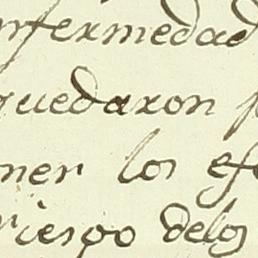 nfermedad
quedaron p
ner los efe
riesgo delos